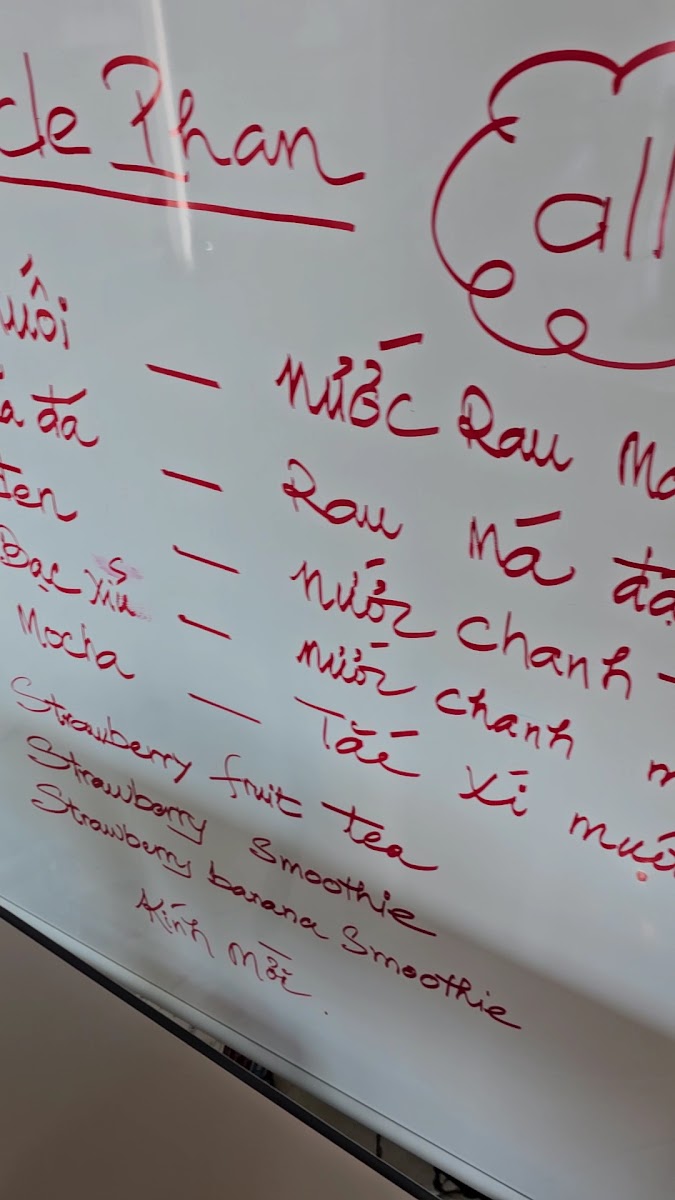 de Phan all
uối — nước Rau Má
đá — Rau Má đậ
đen — nước chanh -
Bạc xỉu — nước chanh m
Mocha — Tắc xí muộ
Strawberry fruit tea
Strawberry Smoothie
Strawberry banana Smoothie
Kính mời.